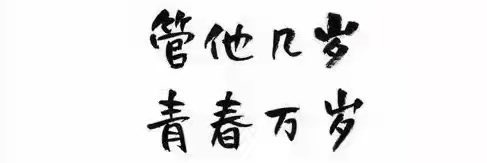 管他几岁
青春万岁